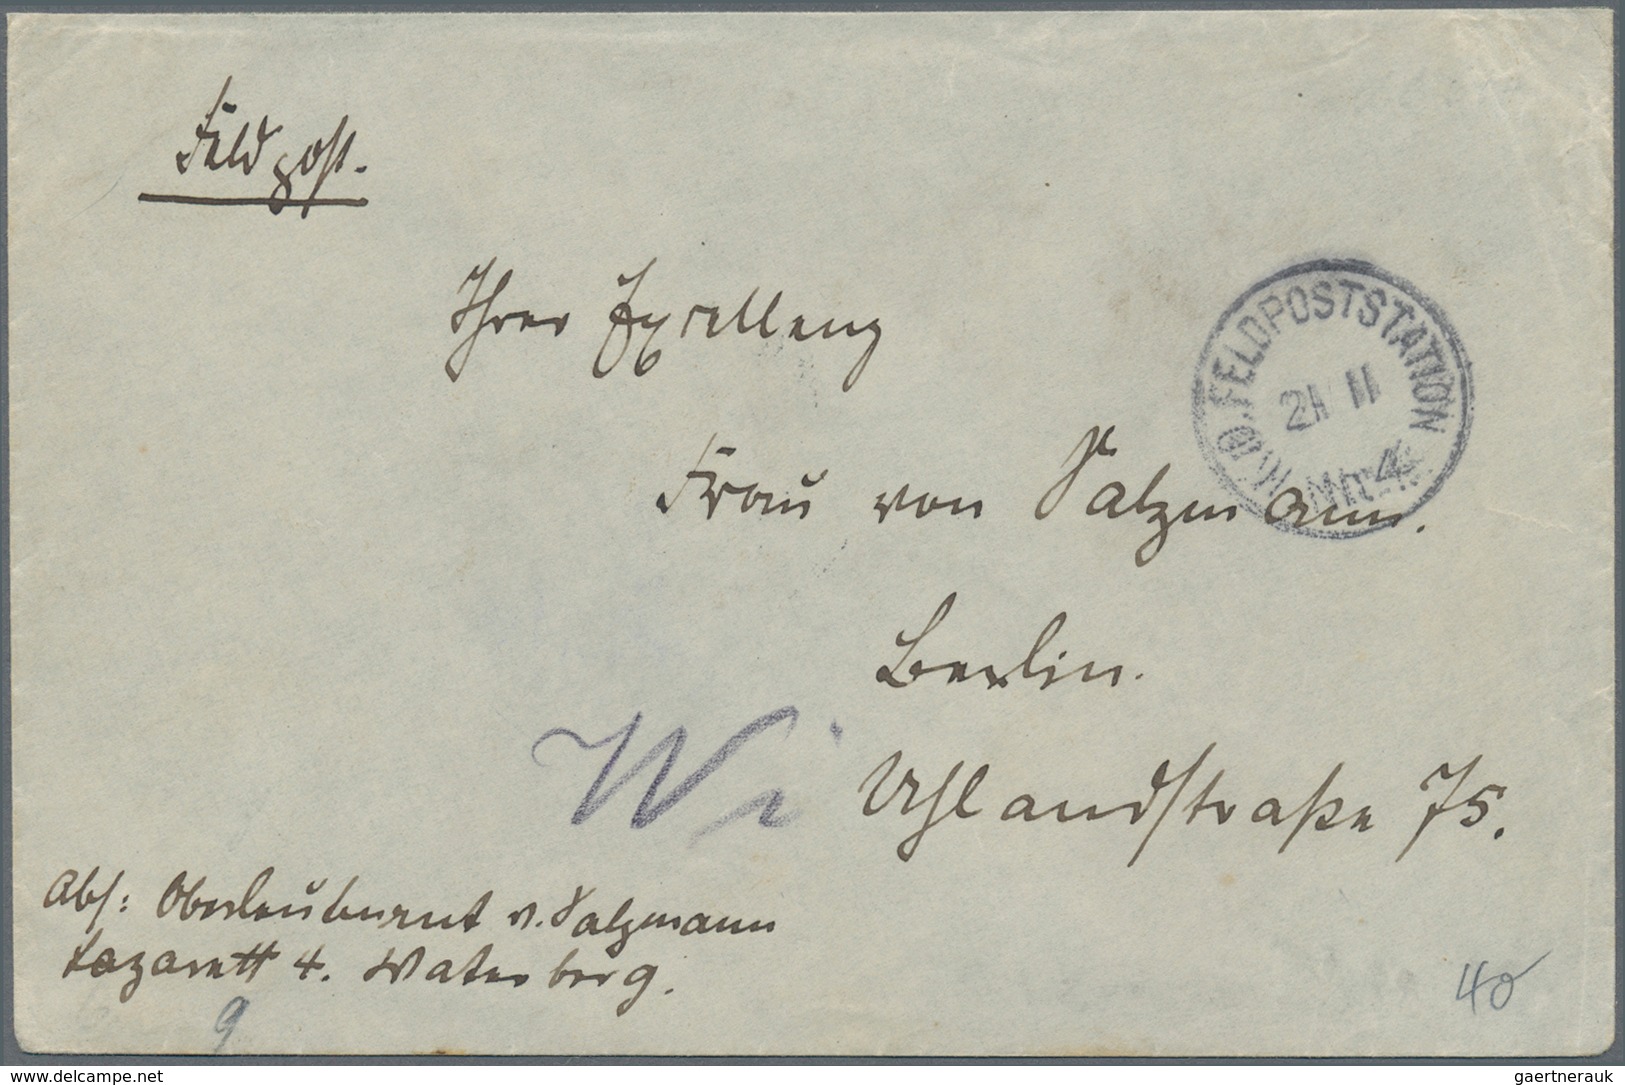 Feldpost.
Ihrer Exzellenz
K.D. FELDPOSTSTATION
21 11
Nr. 4
Frau von Salzmann.
Berlin.
Wi
Uhlandstraße 75.
Abs: Oberleutnant v. Salzmann
Lazarett 4. Waterberg.
9
40
www.delcampe.net
gaertnerauk